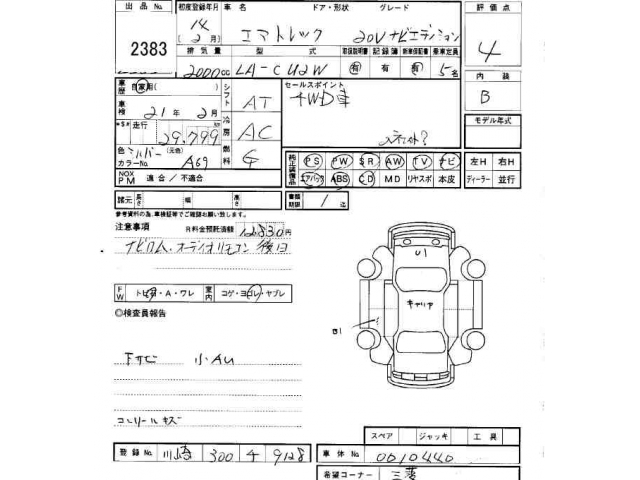 出品No. 2383
初度登録年月 14年2月
車名 エアトレック
ドア・形状 グレード 20V ナビエディション
評価点 4
排気量 2000cc
型式 LA-CU2W
取扱説明書 有
記録簿 有
新車保証書 有
乗車定員 5名
内装 B
車歴 自家用( )
シフト AT
セールスポイント
4WD車
車検 21年 2月
冷房 AC
モデル年式
走行 29,799
色 シルバー (元色)
カラーNo. A69
燃料 G
純正装備品 PS PW SR AW TV ナビ 左H 右H
エアバック ABS CD MD リヤスポ 本皮 ディーラー 並行
NOX PM 適合/不適合
諸元 長さ 幅 高さ
書類期限 1 迄
参考資料の為、車検証等でご確認お願い致します。
注意事項 R料金預託済額 12830円
ナビロム・オーディオリモコン 後日
FW トビ石・A・ワレ 室内 コゲ・ヨゴレ・ヤブレ
◎検査員報告
U1
キャリア
B1
下サビ 小AU
コンソールキズ
スペア ジャッキ 工具
登録No. 川崎 300 チ 9128
車体No. 0010440
希望コーナー 三菱